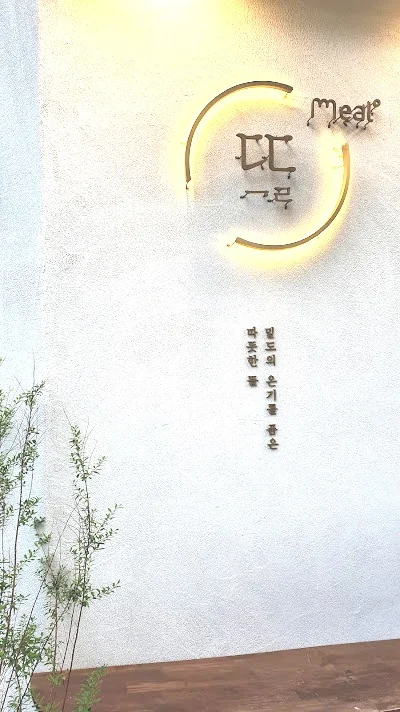 Meat°
뜰
밀도의 온기를 품은
따뜻한 뜰